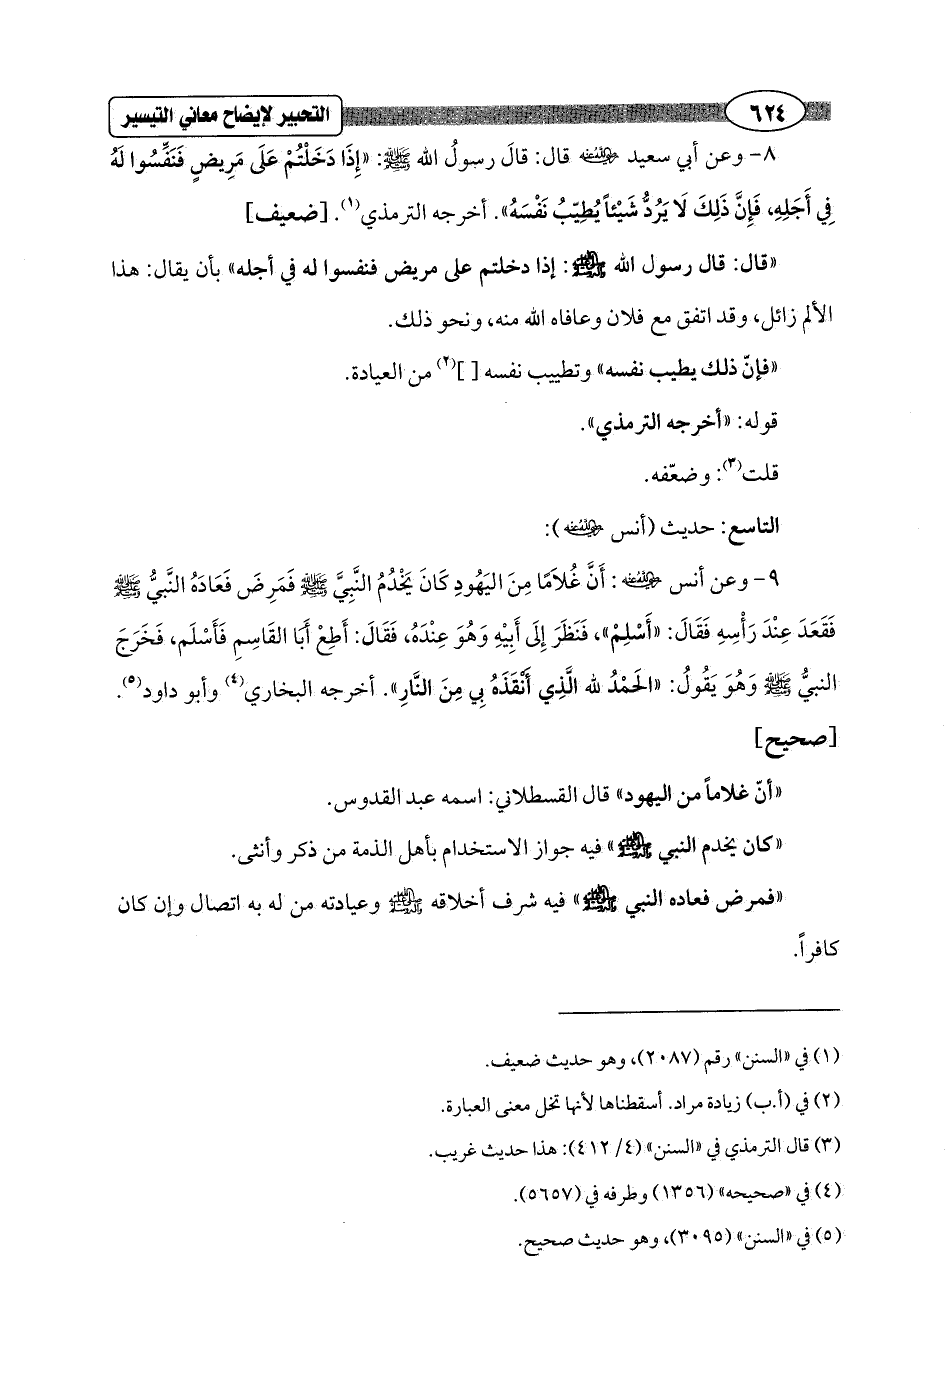 ٦٢٤ التحبير لإيضاح معاني التيسير
٨- وعن أبي سعيد رضي الله عنه قال: قالَ رسولُ الله ﷺ: «إِذَا دَخَلْتُمْ عَلَى مَرِيضٍ فَنَفِّسُوا لَهُ
فِي أَجَلِهِ، فَإِنَّ ذَلِكَ لَا يَرُدُّ شَيْئاً يُطيِّبُ نَفْسَهُ». أخرجه الترمذي(١). [ضعيف]
«قال: قال رسول الله ﷺ: إذا دخلتم على مريض فنفسوا له في أجله» بأن يقال: هذا
الألم زائل، وقد اتفق مع فلان وعافاه الله منه، ونحو ذلك.
«فإنّ ذلك يطيب نفسه» وتطييب نفسه [ ](٢) من العيادة.
قوله: «أخرجه الترمذي».
قلت(٣): وضعّفه.
التاسع: حديث (أنس رضي الله عنه):
٩- وعن أنس رضي الله عنه: أَنَّ غُلَامًا مِنَ اليَهُودِ كَانَ يَخْدُمُ النَّبِيَّ ﷺ فَمَرِضَ فَعَادَهُ النَّبِيُّ ﷺ
فَقَعَدَ عِنْدَ رَأْسِهِ فَقَالَ: «أَسْلِمْ»، فَنَظَرَ إِلَى أَبِيهِ وَهُوَ عِنْدَهُ، فَقَالَ: أَطِعْ أَبَا القَاسِمِ فَأَسْلَم، فَخَرَجَ
النبيُّ ﷺ وَهُوَ يَقُولُ: «الحَمْدُ لله الَّذِي أَنْقَذَهُ بِي مِنَ النَّارِ». أخرجه البخاري(٤) وأبو داود(٥).
[صحيح]
«أنّ غلاماً من اليهود» قال القسطلاني: اسمه عبد القدوس.
«كان يخدم النبي ﷺ» فيه جواز الاستخدام بأهل الذمة من ذكر وأنثى.
«فمرض فعاده النبي ﷺ» فيه شرف أخلاقه ﷺ وعيادته من له به اتصال وإن كان
كافراً.
(١) في «السنن» رقم (٢٠٨٧)، وهو حديث ضعيف.
(٢) في (أ.ب) زيادة مراد. أسقطناها لأنها تخل معنى العبارة.
(٣) قال الترمذي في «السنن» (٤/ ٤١٢): هذا حديث غريب.
(٤) في «صحيحه» (١٣٥٦) وطرفه في (٥٦٥٧).
(٥) في «السنن» (٣٠٩٥)، وهو حديث صحيح.